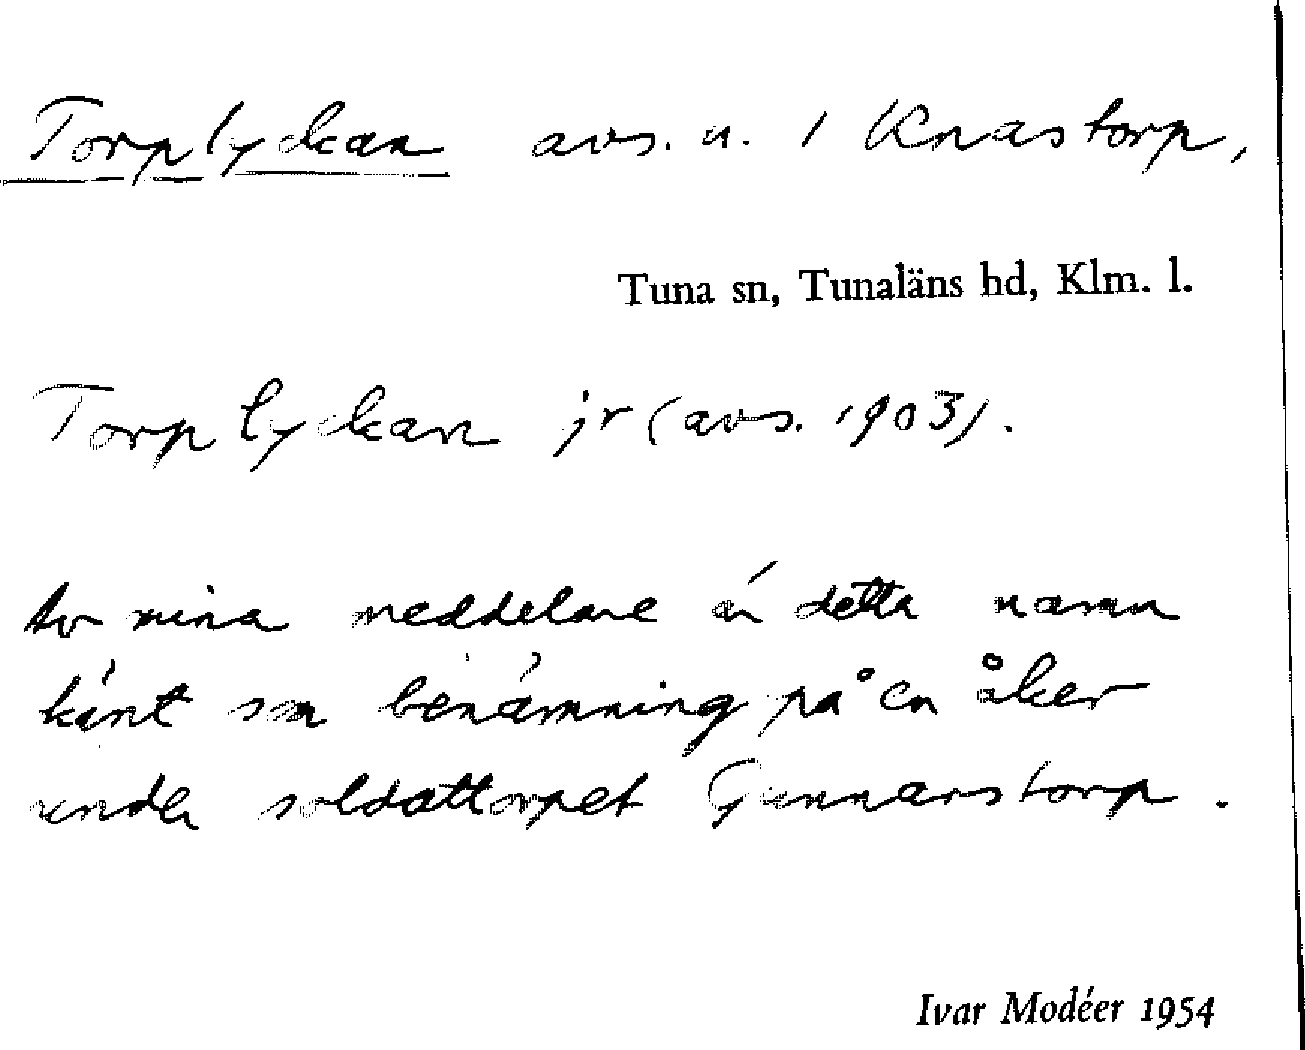 Torplyckan avs. u. i Knastorp,
Tuna sn, Tunaläns hd, Klm. l.
Torplyckan jr (avs. 1903).
Av mina meddelare är detta namn
känt som benämning på en åker
under soldattorpet Gunnarstorp.
Ivar Modéer 1954